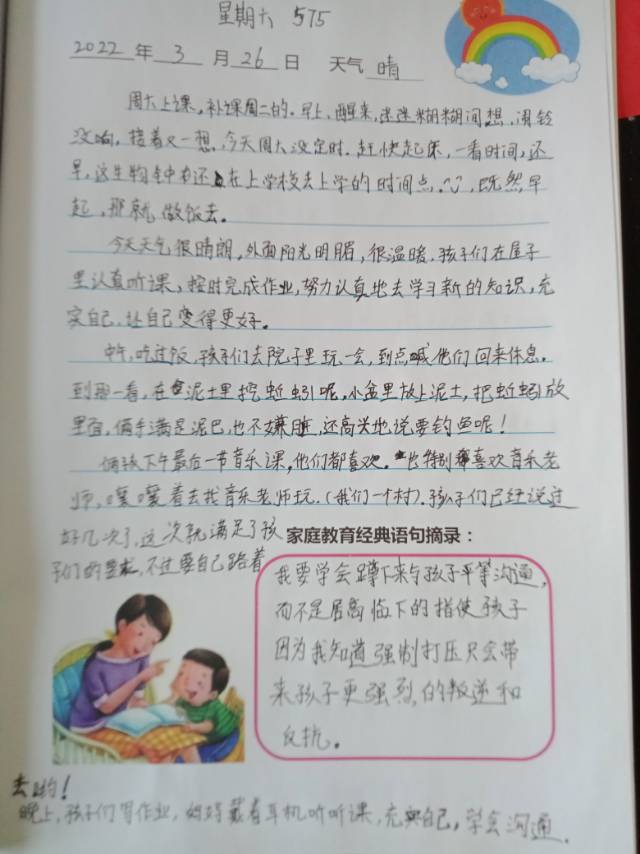 星期六 575
2022 年 3 月 26 日 天气 晴
周六上课,补课周二的。早上,醒来,迷迷糊糊间想,闹铃
没响,接着又一想,今天周六没定时。赶快起床,一看时间,还
早,这生物钟有还在上学校去上学的时间点,既然早
起,那就做饭去。
今天天气很晴朗,外面阳光明眉,很温暖,孩子们在屋子
里认真听课,按时完成作业,努力认真地去学习新的知识,充
实自己,让自己变得更好。
中午,吃过饭,孩子们去院子里玩一会,到点喊他们回来休息。
到那一看,在泥土里挖蚯蚓呢,小盆里放上泥土,把蚯蚓放
里面,俩手满是泥巴,也不嫌脏,还高兴地说要钓鱼呢!
俩孩下午最后一节音乐课,他们都喜欢。也特别喜欢音乐老
师,嚷嚷着去找音乐老师玩。(我们一个村)。孩子们已经说过
好几次了,这次就满足了孩
子们的 不过要自己踏着
家庭教育经典语句摘录:
我要学会蹲下来与孩子平等沟通,
而不是居高临下的指使孩子
因为我知道强制打压只会带
来孩子更强烈的叛逆和
反抗。
去哟!
晚上,孩子们写作业,妈妈戴着耳机听听课,充实自己,学会沟通。